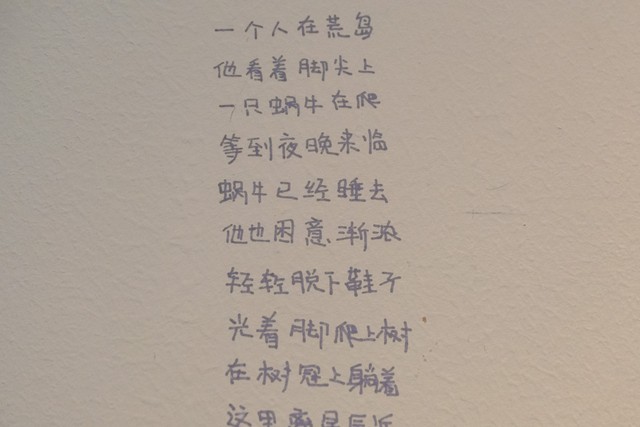 一个人在荒岛
他看着脚尖上
一只蜗牛在爬
等到夜晚来临
蜗牛已经睡去
他也困意渐浓
轻轻脱下鞋子
光着脚爬上树
在树冠上躺着
这里离星辰近